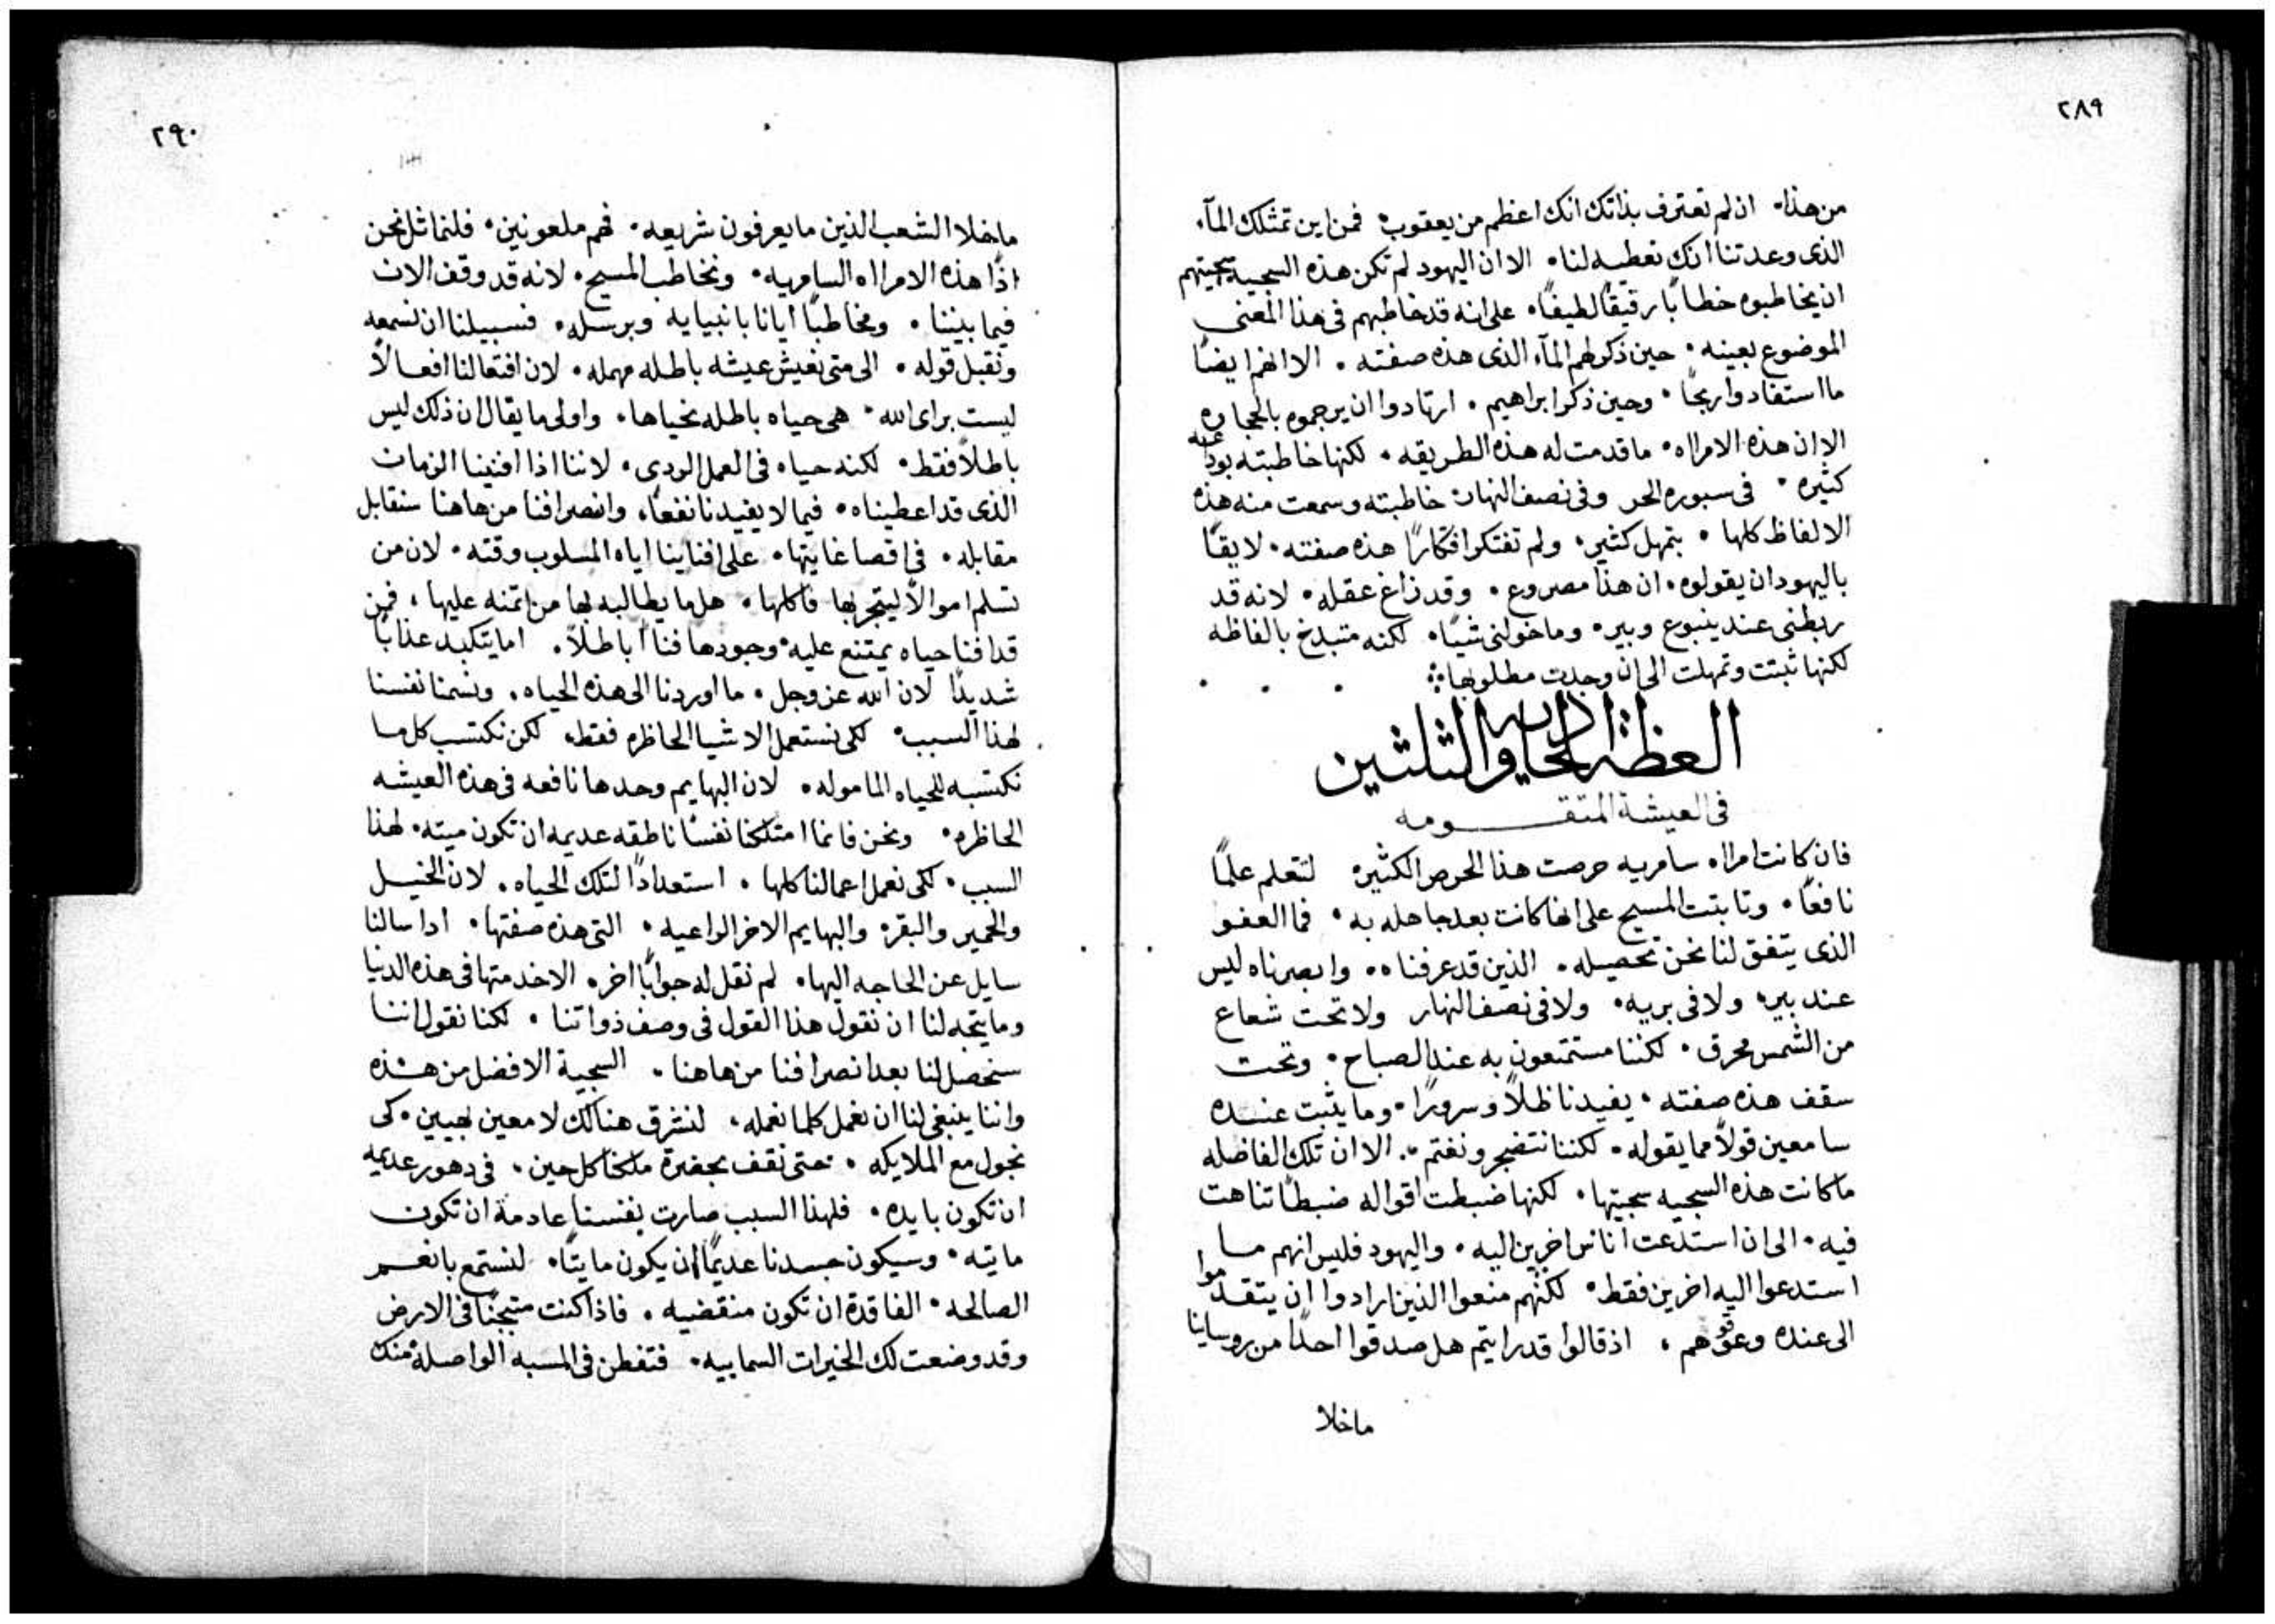 ٢٨٩
من هذا • ان لم تعترف بذاتك انك اعظم من يعقوب • فمن اين تمتلك المآء
الذى وعدتنا انك تعطيه لنا • الا ان اليهود لم تكن هذه السجيه سجيتهم
ان يخاطبوه خطابًا رقيقًا لطيفًا • على انه قد خاطبهم فى هذا المعنى
الموضوع بعينه • حين ذكر لهم المآء الذى هذه صفته • الا انهم ايضًا
ما استفادوا ربحًا • وحين ذكر ابراهيم • ارتادوا ان يرجموه بالحجاره
الا ان هذه الامراه • ما قدمت له هذه الطريقه • لكنها خاطبته بودعيه
كثيره • فى سبوره الحر وفى نصف النهار خاطبته وسمعت منه هذه
الالفاظ كلها • بتمهل كثير • ولم تفتكر افتكارًا هذه صفته • لايقًا
باليهود ان يقولوه • ان هذا مصروع • وقد زاغ عقله • لانه قد
ربطنى عند ينبوع وبير • وما خولنى شيًا • لكنه متبدخ بالفاظه
لكنها ثبتت وتمهلت الى ان وجدت مطلوبها
العظة الحاديه والثلثين
فى العيشة المتقومه
فان كانت امراه • سامريه حرصت هذا الحرص الكثير لتتعلم علمًا
نافعًا • وثابتت المسيح على انها كانت بعد جاهله به • فما العفو
الذى يتفق لنا نحن تحصيله • الذين قد عرفناه • وابصرناه ليس
عند بير ولا فى بريه • ولا فى نصف النهار ولا تحت شعاع
من الشمس محرق • لكننا مستمتعون به عند الصباح • وتحت
سقف هذه صفته • يفيدنا ظلًا وسرورًا • وما يثبت عنده
سامعين قولًا مما يقوله • لكننا نتضجر ونغتم • الا ان تلك الفاضله
ما كانت هذه السجيه سجيتها • لكنها ضبطت اقواله ضبطًا تناهت
فيه • الى ان استدعت اناس اخرين اليه • واليهود فليس انهم ما
استدعوا اليه اخرين فقط • لكنهم منعوا الذين ارادوا ان يتقدموا
الى عنده وعوقوهم • اذ قالوا قد رايتم هل صدقوا احدًا من روساينا
ماخلا
٢٩٠
ماخلا الشعب الذين ما يعرفون شريعه • فهم ملعونين • فلنماثل نحن
اذًا هذه الامراه السامريه • ونخاطب المسيح • لانه قد وقف الان
فيما بيننا • ومخاطبًا ايانا بانبيايه وبرسله • فسبيلنا ان نسمعه
ونقبل قوله • الى متى نعيش عيشه باطله مهمله • لان افتعالنا افعالًا
ليست براى الله • هى حياه باطله نحياها • واولى ما يقال ان ذلك ليس
باطلًا فقط • لكنه حياه فى العمل الردى • لاننا اذا افنينا الزمان
الذى قد اعطيناه • فيما لا يفيدنا نفعًا • وانصرافنا من هاهنا سنقابل
مقابله • فى اقصا غايتها • على افناينا اياه المسلوب وقته • لان من
تسلم اموالًا ليتجر بها فاكلها • هل ما يطالبه بها من ائتمنه عليها • فمن
قد افنا حياه يمتنع عليه وجودها فناًا باطلًا • اما يتكبد عذابًا
شديدًا لان الله عز وجل • ما اوردنا الى هذه الحياه • ونسمنا نفسنا
لهذا السبب • لكى نستعمل الاشيا الحاظره فقط • لكن نكتسب كل ما
نكتسبه للحياه الماموله • لان البهايم وحدها نافعه فى هذه العيشه
الحاظره • ونحن فانما امتلكنا نفسًا ناطقه عديمه ان تكون ميته • لهذا
السبب • لكى نعمل اعمالنا كلها • استعدادًا لتلك الحياه • لان الخيل
والحمير والبقر والبهايم الاخر الواعيه • التى هذه صفتها • ادا سالنا
سايل عن الحاجه اليها • لم نقل له جوابًا اخر • الا خدمتها فى هذه الدنيا
وما يتجه لنا ان نقول هذا القول فى وصف ذواتنا • لكنا نقول اننا
سنحصل لنا بعد انصرافنا من هاهنا • السجية الافضل من هذه
واننا ينبغى لنا ان نعمل كلما نعمله • لنشرق هنالك لامعين بهيين • كى
نجول مع الملايكه • حتى نقف بحضرة ملكنا كل حين • فى دهور عديمه
ان تكون بايده • فلهذا السبب صارت نفسنا عادمة ان تكون
مايته • وسيكون جسدنا عديمًا ان يكون مايتًا • لنستمع بالنعم
الصالحه • الفاقدة ان تكون منقضيه • فاذا كنت متبجنًا فى الارض
وقد وضعت لك الخيرات السماييه • فتفطن فى المسبه الواصله منك